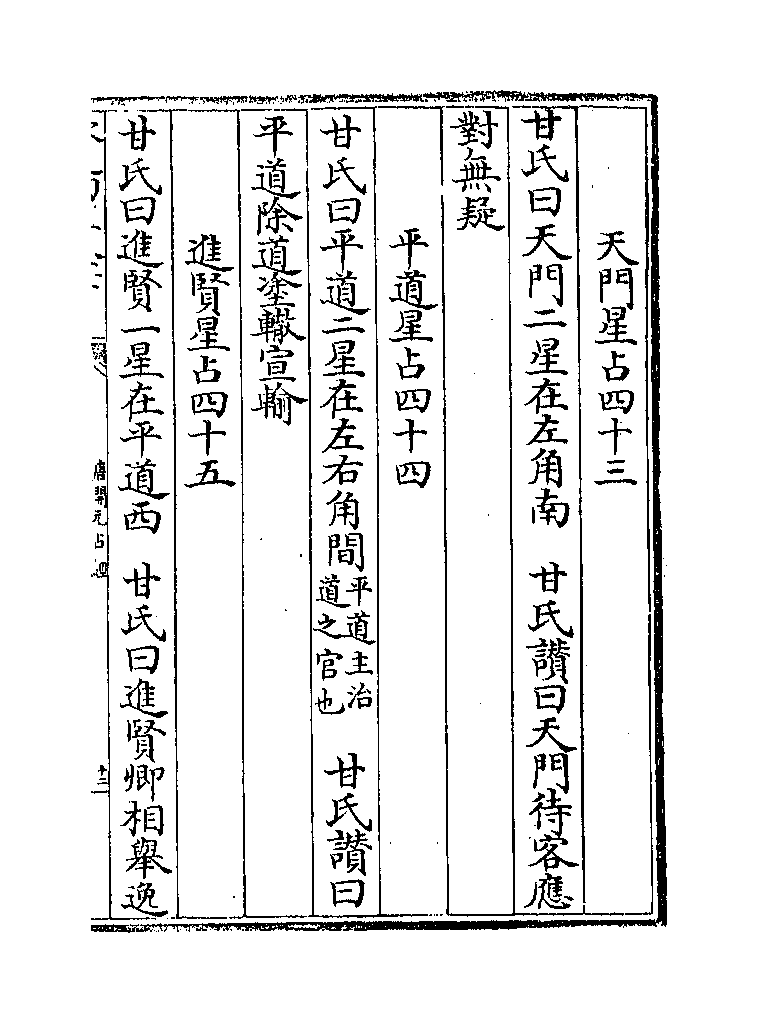 天門星占四十三
甘氏曰天門二星在左角南　甘氏讃曰天門待客應
對無疑
平道星占四十四
甘氏曰平道二星在左右角間平道主治道之官也　甘氏讃曰
平道除道塗轍宣輸
進賢星占四十五
甘氏曰進賢一星在平道西　甘氏曰進賢卿相舉逸
唐開元占經
十三